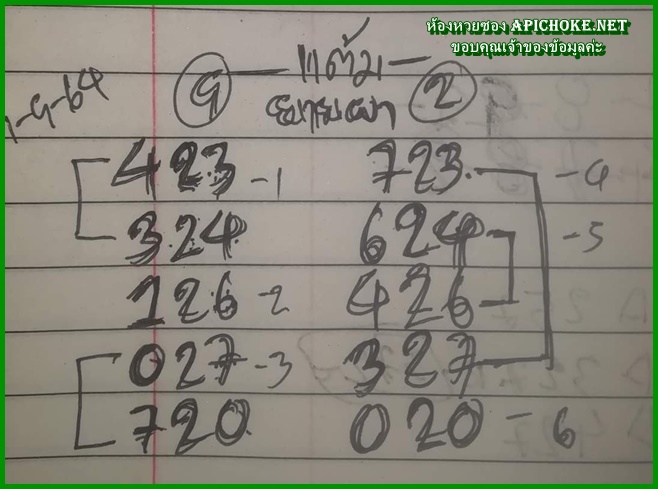 ห้องหวยซอง APICHOKE.NET
ขอบคุณเจ้าของข้อมูลค่ะ
9 — แต้ม — 2
-9-64
423 -1 723 -4
324 624 -5
126 -2 426
027 -3 327
720 020 - 6